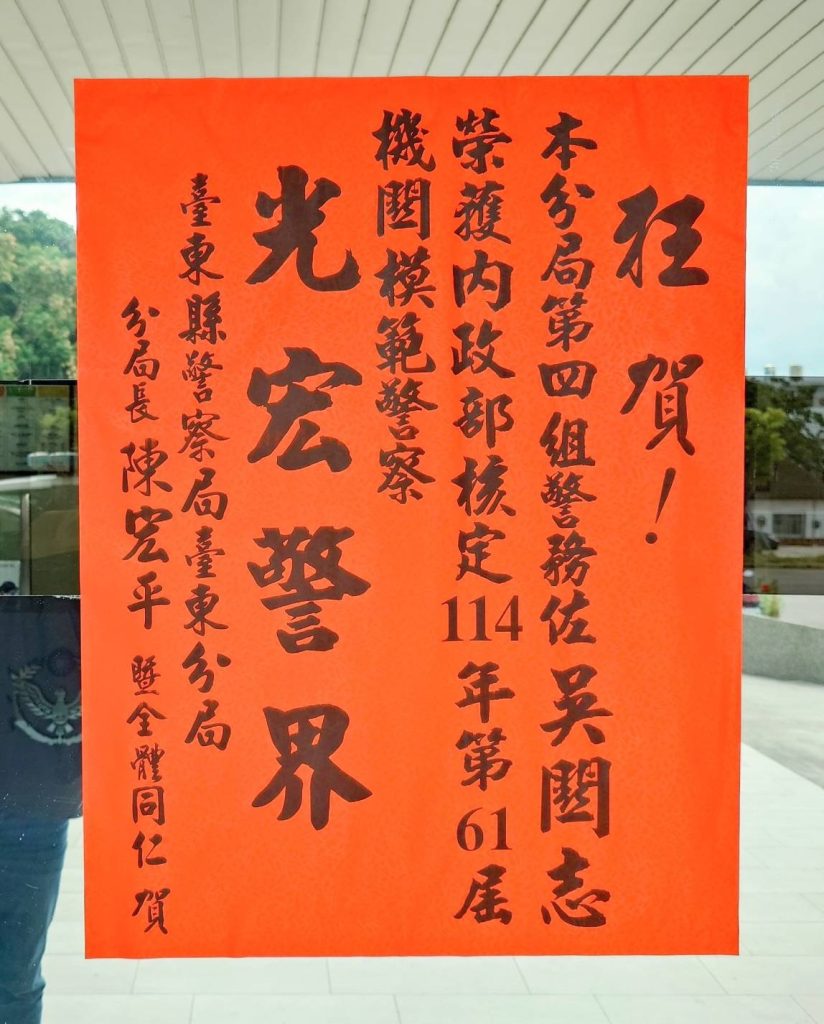 狂賀！
本分局第四組警務佐吳關志
榮獲內政部核定114年第61屆
機關模範警察
光宏警界
臺東縣警察局臺東分局
分局長陳宏平暨全體同仁 賀